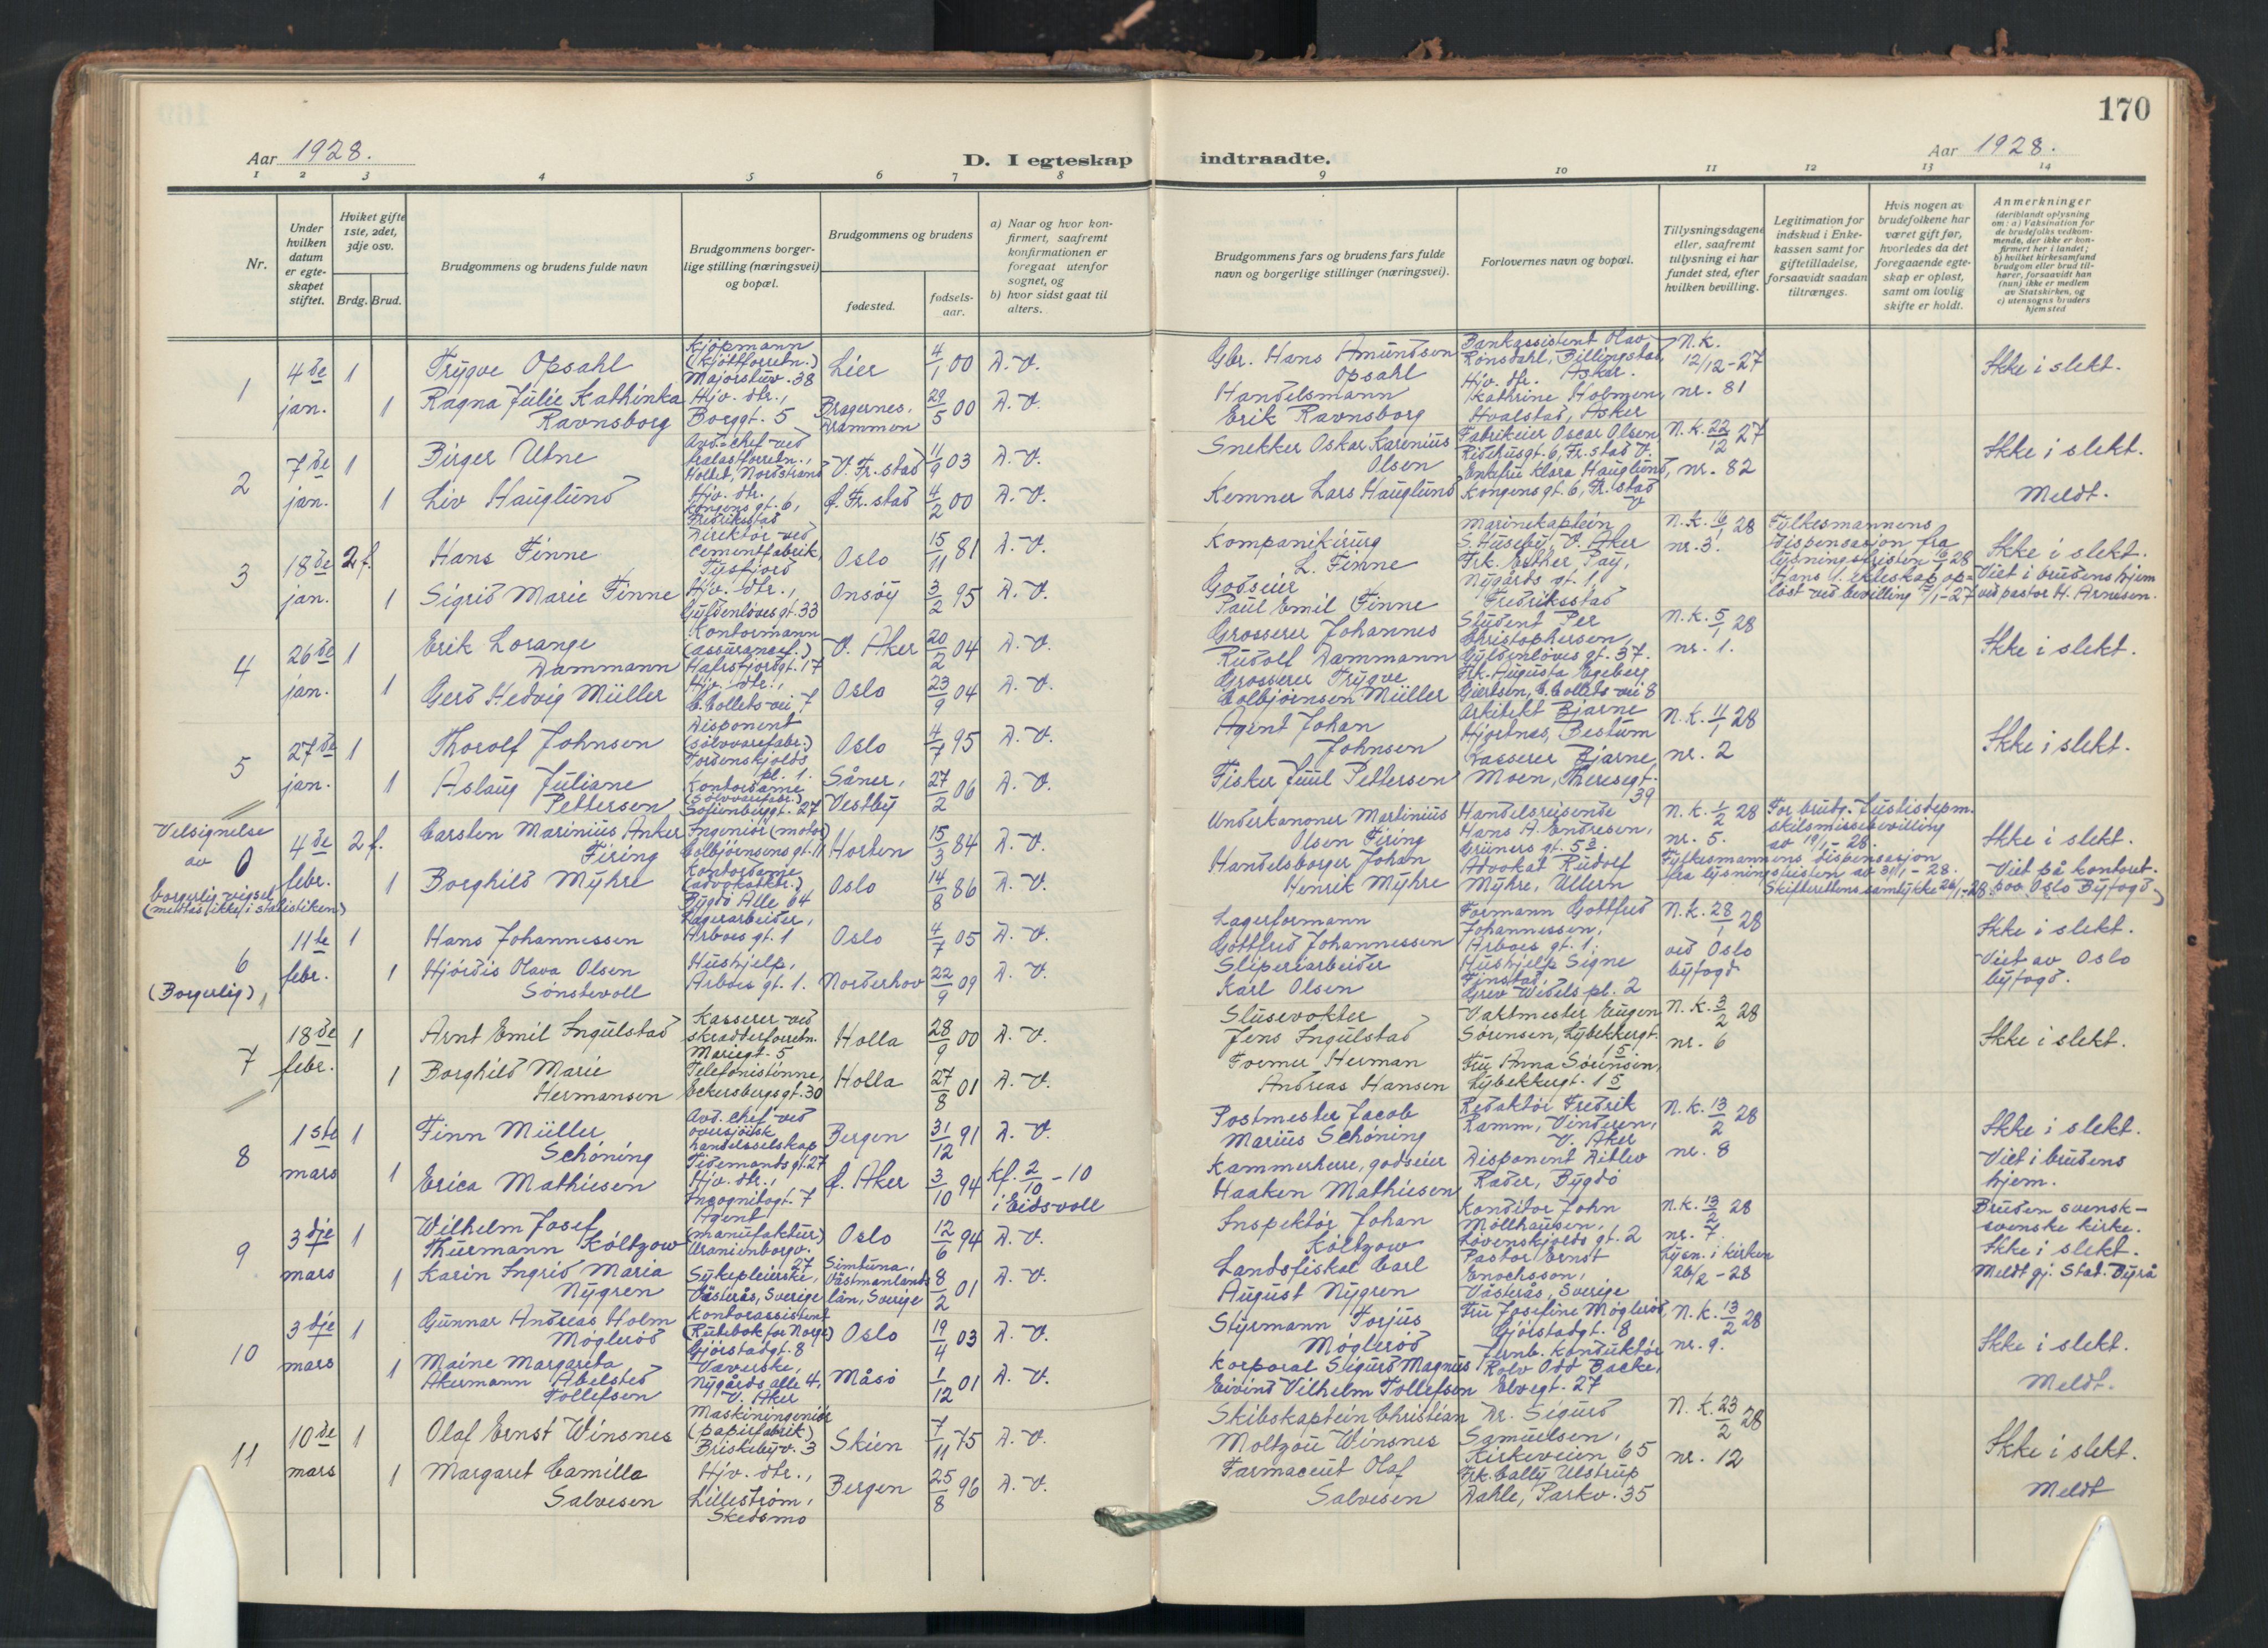 170
Aar 1928.
D. I egteskap indtraadte.
Aar 1928.
1 2 3 4 5 6 7 8 9 10 11 12 13 14
Nr.
Under hvilken datum er egte-skapet stiftet.
Hviket gifte 1ste, 2det, 3dje osv.
Brdg. Brud.
Brudgommens og brudens fulde navn
Brudgommens borger-lige stilling (næringsvei) og bopæl.
Brudgommens og brudens
fødested.
fødsels-aar.
a) Naar og hvor kon-firmert, saafremt konfirmationen er foregaat utenfor sognet, og
b) hvor sidst gaat til alters.
Brudgommens fars og brudens fars fulde navn og borgerlige stillinger (næringsvei).
Forlovernes navn og bopæl.
Tillysningsdagene eller, saafremt tillysning ei har fundet sted, efter hvilken bevilling.
Legitimation for indskud i Enke-kassen samt for giftetilladelse, forsaavidt saadan tiltrænges.
Hvis nogen av brudefolkene har været gift før, hvorledes da det foregaaende egte-skap er opløst, samt om lovlig skifte er holdt.
Anmerkninger
(deriblandt oplysning om: a) Vaksination for de brudefolks vedkom-mende, der ikke er kon-firmert her i landet; b) hvilket kirkesamfund brudgom eller brud til-hører, forsaavidt han (hun) ikke er medlem av Statskirken, og c) utensogns bruders hjemsted
1 4de jan. 1 Trygve Opsahl Kjøpmann (kjøttforretn.) Majorstuv. 38 Lier 4/1 00 D. V. Gbr. Hans Amundsen Opsahl Bankassistent Olav Rønsdahl, Billingstad, Asker. N.k. 12/12-27 Ikke i slekt.
1 Ragna Julie Kathinka Ravnsborg Hjv. dtr., Borggt. 5 Bragernes, Drammen 29/5 00 D. V. Handelsmann Erik Ravnsborg Hjv. dtr. Kathrine Holmen, Hvalstad, Asker nr. 81
2 7de jan. 1 Birger Utne Avd.-chef ved Holtet, Nordstrand V. Fr.stad 11/9 03 D. V. Snekker Oskar Karenius Olsen Fabrikeier Oscar Olsen, Ridehusgt. 6, Fr.stad V. N.k. 22/12 27 Ikke i slekt.
1 Liv Hauglund Hjv. dtr. Kongens gt. 6, Fredriksstad f. Fr.stad 4/2 00 D. V. Kemner Lars Hauglund Enkefru Klara Hauglund, Kongens gt. 6, Fr.stad V nr. 82 Meldt.
3 18de jan. 2 f. Hans Finne Direktør ved Cementfabrik, Tusfjord Oslo 15/11 81 D. V. Kompanikirurg L. Finne Marinekaptein S. Huseby, V. Aker N.k. 16/1 28 nr. 3. Fylkesmannens dispensasjon fra lysningsfristen 16/1 28 Ikke i slekt.
1 Sigrid Marie Finne Hjv. dtr., Gyldenløves gt. 33 Onsøy 3/2 95 D. V. Godseier Paul Emil Finne Frk. Esther Pay, Nygårds gt. 1, Fredriksstad Hans 1. ekteskap op-løst ved bevilling 1-27 Viet i brudens hjem ved pastor H. Arnesen.
4 26de jan. 1 Erik Lorange Dammann Kontormann (assurancef.) Hafrsfjordgt. 17 V. Aker 20/2 04 D. V. Grosserer Johannes Rudolf Dammann Student Per Christophersen, Gyldenløves gt. 37. N.k. 5/1 28 nr. 1. Ikke i slekt.
1 Gerd Hedvig Müller Hjv. dtr., C. Collets vei 7 Oslo 23/9 04 D. V. Grosserer Trygve Colbjørnsen Müller Frk. Augusta Egeberg Giertsen, C. Collets vei 8
5 27de jan. 1 Thorolf Johnsen Disponent (sølvvarefabr.) Tordenskjolds pl. 1. Oslo 4/7 95 D. V. Agent Johan Johnsen Arkitekt Bjarne Hjortnæs, Bestum N.k. 11/1 28 nr. 2 Ikke i slekt.
1 Aslaug Juliane Pettersen Kontordame (sølvvarefabr.) Sofienberggt. 27 Såner, Vestby 27/2 06 D. V. Fisker Juul Pettersen Kasserer Bjarne Moen, Theresegt. 39
Velsignelse av borgerlig vigsel (mettas ikke i statistiken)
0 4de febr. 2 f. Carsten Marinius Anker Firing Ingeniør (motor) Colbjørnsens gt. 11 Horten 15/3 84 D. V. Underkanoner Martinius Olsen Firing Handelsreisende Hans A. Endresen, Grüners gt. 5 N.k. 1/2 28 nr. 5. For brudg. Justisdepm. skilsmissebevilling av 19/1-28. Ikke i slekt.
1 Borghild Myhre Kontordame (advokatktr.) Bygdø Alle 64 Oslo 14/8 86 D. V. Handelsborger Johan Henrik Myhre Advokat Rudolf Myhre, Ullern Fylkesmannens dispensasjon fra lysningsfristen av 31/1-28. Skifterettens samtykke 26/1-28. Viet på kontoret. Oslo Byfogd
6 (Borgerlig) 11te febr. 1 Hans Johannessen Lagerarbeider, Arboes gt. 1 Oslo 4/7 05 D. V. Lagerformann Gottfred Johannessen Formann Gottfred Johannessen, Arboes gt. 1. N.k. 28/1 28 ved Oslo byfogd Ikke i slekt.
1 Hjørdis Olava Olsen Sønstevoll Hushjelp, Arboes gt. 1. Norderhov 22/9 09 D. V. Sliperiarbeider Karl Olsen Hushjelp Signe Finstad, Grev Wedels pl. 2 Viet av Oslo byfogd.
7 18de febr. 1 Arnt Emil Ingulstad Kasserer ved skredderforretn. Mariegt. 5 Holla 28/9 00 D. V. Slusevokter Jens Ingulstad Vaktmester Eugen Sørensen, Lybekkergt. 15 N.k. 3/2 28 nr. 6 Ikke i slekt.
1 Borghild Marie Hermansen Telefonistinne, Eckersbergs gt. 30 Holla 27/8 01 D. V. Former Herman Andreas Hansen Fru Anna Sørensen, Lybekkergt. 15
8 1ste mars 1 Finn Müller Schöning Avd. chef ved oversjøisk handelsselskap Tidemands gt. 27 Bergen 31/12 91 D. V. Postmester Jacob Marius Schöning Redaktør Fredrik Ramm, Vinderen, V. Aker N.k. 13/2 28 nr. 8 Ikke i slekt.
1 Erica Mathiesen Hjv. dtr., Incognitogt. 7 f. Aker 3/10 94 Kf. 2/10-10 i Eidsvoll Kammerherre, godseier Haaken Mathiesen Disponent Ditlev Rader, Bygdø Viet i brudens hjem.
9 3dje mars 1 Wilhelm Josef Thurmann Költzow Agent (manufaktur) Uranienborgv. 27 Oslo 12/6 94 D. V. Inspektør Johan Költzow Konditor John Möllhausen, Løvenskjolds gt. 2 N.k. 13/2 28 nr. 7. Bruden svensk - svenske kirke. Ikke i slekt.
1 Karin Ingrid Maria Nygren Sykepleierske, Västerås, Sverige Simtuna, Västmanlands län, Sverige 8/2 01 D. V. Landsfiskal Carl August Nygren Pastor Ernst Enochsson, Västerås, Sverige Lysn. i kirken 26/2-28 Meldt gj. Stat. Byrå
10 3dje mars 1 Gunnar Andreas Holm Møglerød Kontorassistent (Rutebok for Norge) Gjørstadgt. 8 Oslo 19/4 03 D. V. Styrmann Torjus Møglerød Fru Josefine Møglerød, Gjørstadgt. 8 N.k. 13/2 28 nr. 9. Ikke i slekt.
1 Maine Margareta Akermann Abelsted Tollefsen Væverske, Nygårds alle 4, V. Aker Måsø 1/12 01 D. V. Korporal Sigurd Magnus Eivind Vilhelm Tollefsen Jernb. konduktør Rolv Odd Backe, Elvegt. 27 Meldt.
11 10de mars 1 Olaf Ernst Winsnes Maskiningeniør (papirfabrik) Briskebyv. 3 Skien 7/11 75 D. V. Skibskaptein Christian Moltzau Winsnes Dr. Sigurd Samuelsen, Kirkeveien 65 N.k. 23/2 28 nr. 12 Ikke i slekt.
1 Margaret Camilla Salvesen Hjv. dtr., Lillestrøm, Skedsmo Bergen 25/8 96 D. V. Farmaceut Olaf Salvesen Frk. Cally Ulstrup Dahle, Parkv. 35 Meldt